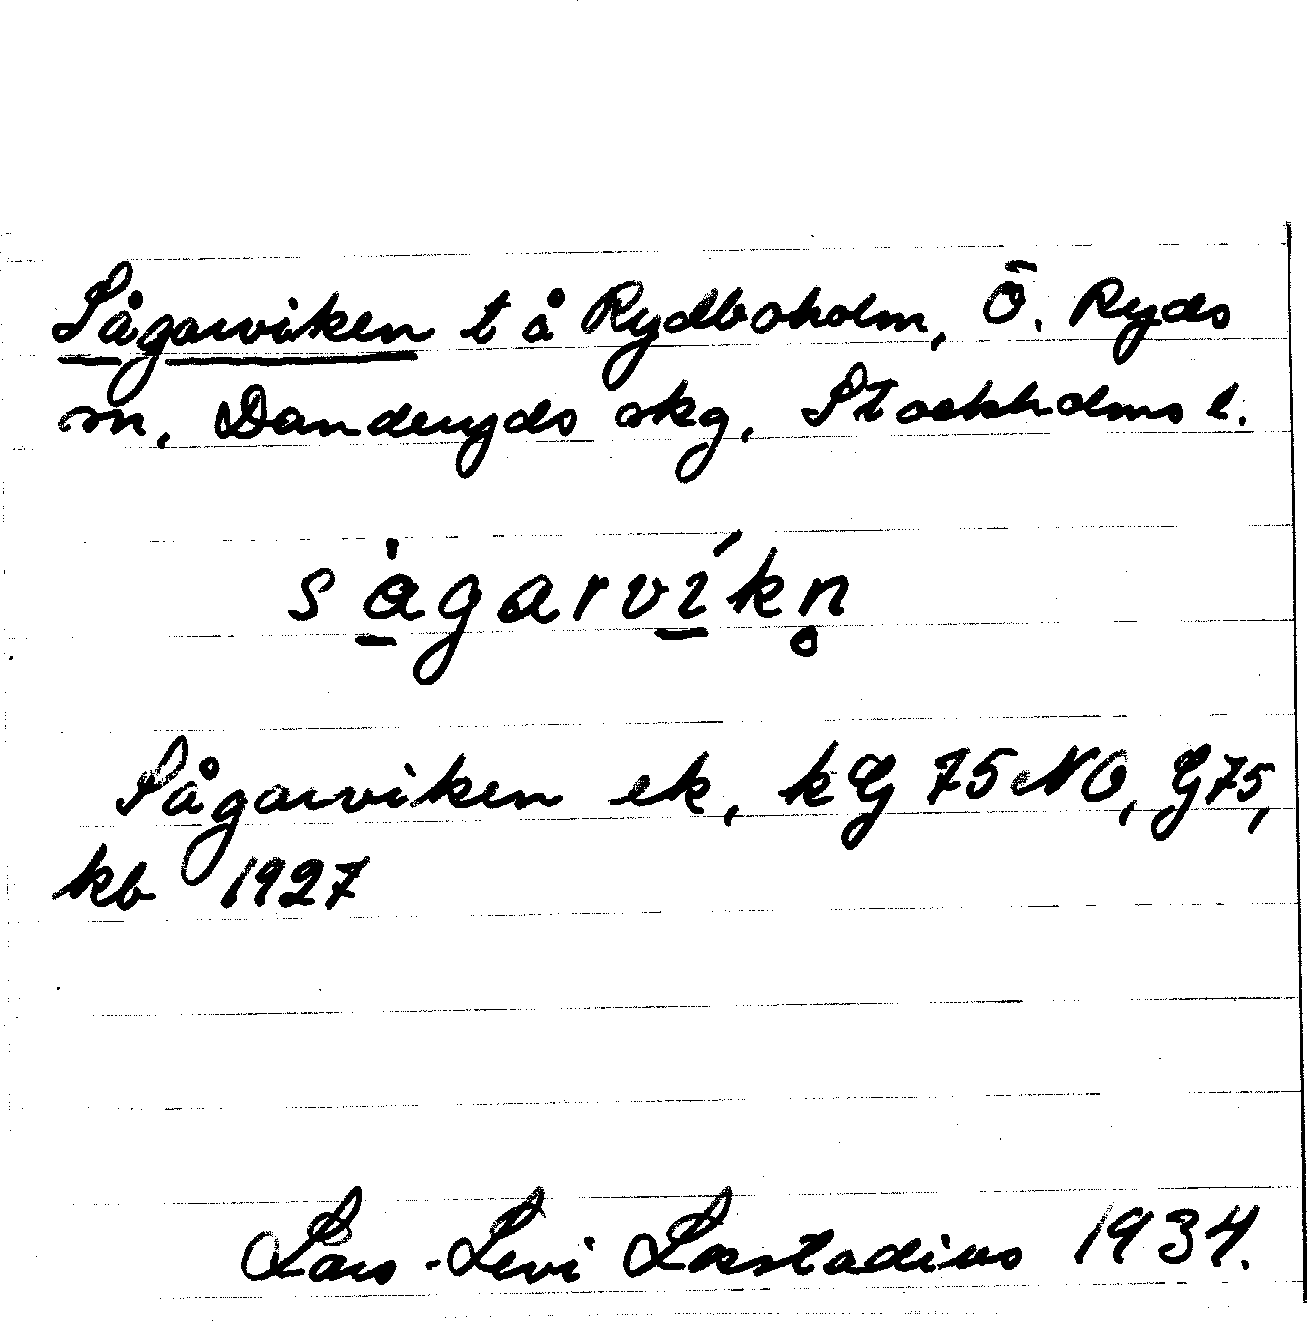 Sågarviken t å Rydboholm, Ö. Ryds
sn, Danderyds skg, Stockholms l.
sågarvíkn̥
Sågarviken ek, kG 75 NO, G 75,
kb 1927
Lars-Levi Læstadius 1934.